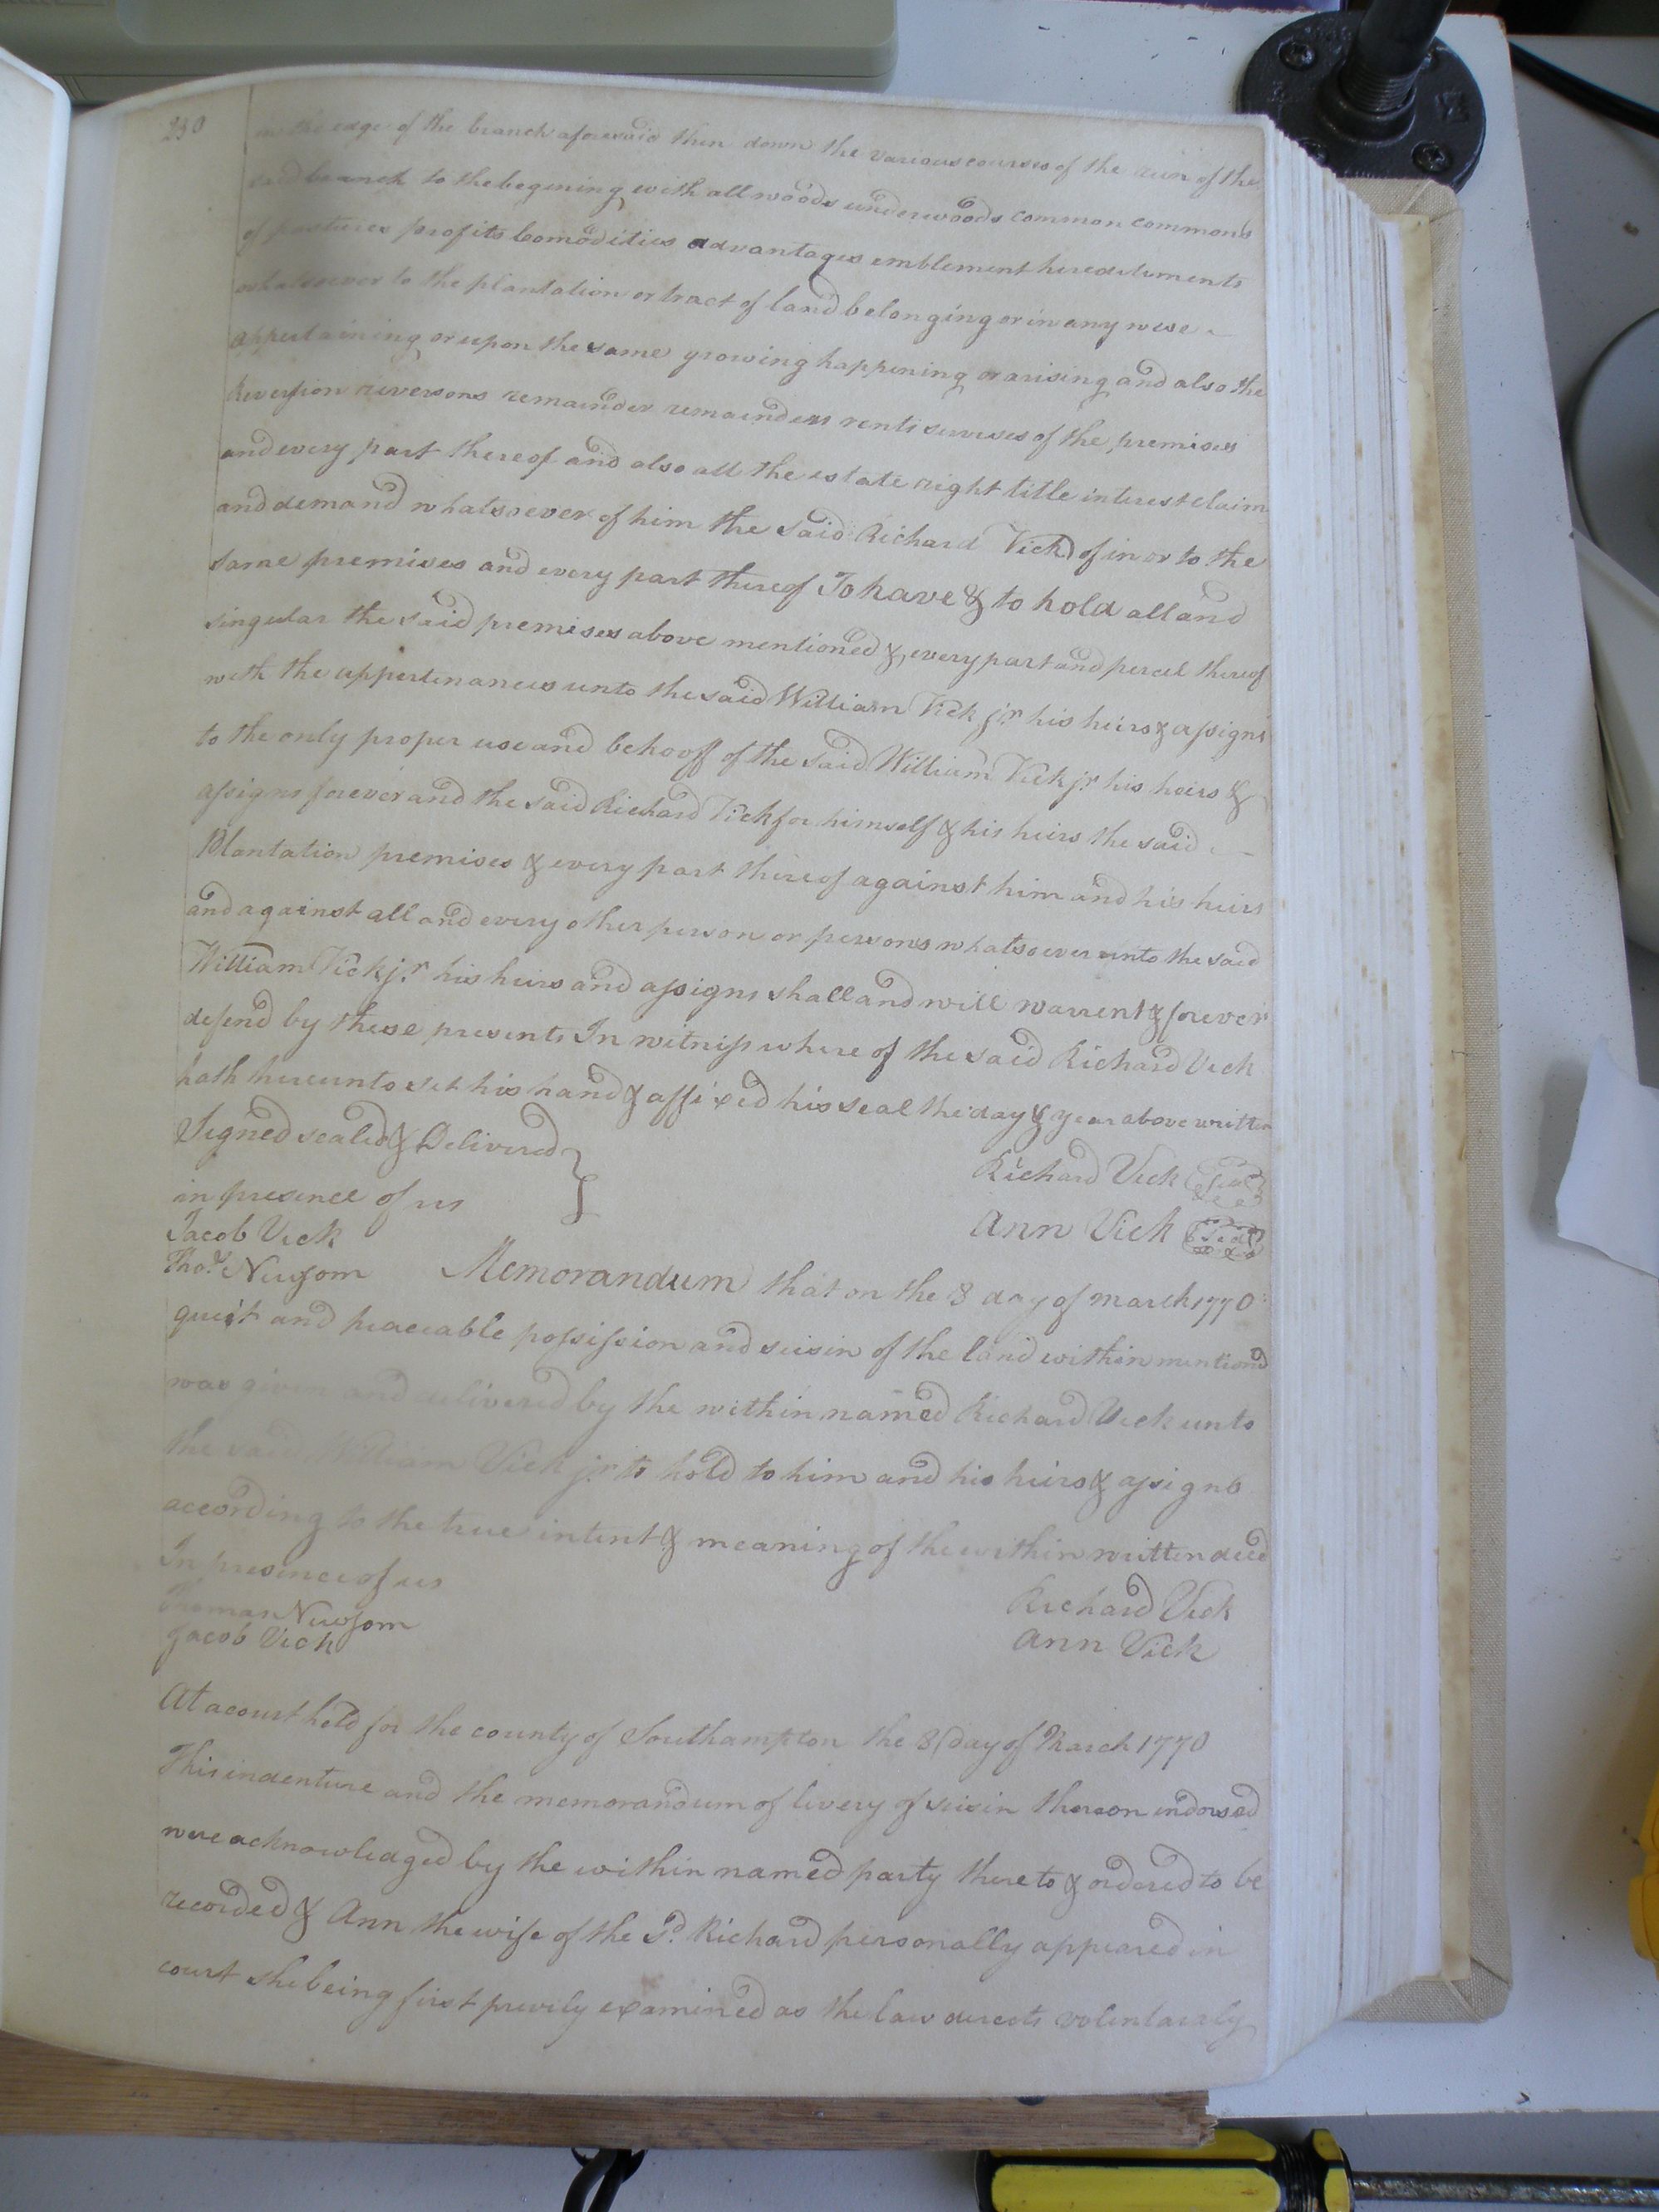 230
in the edge of the branch aforesaid then down the various courses of the run of the
said branch to the begining with all woods underwoods common commons
of pastures profits Comodities advantages emblement heredetements
whatsoever to the plantation or tract of land belonging or in any wise
appertaining or upon the same growing happening or arising and also the
Reversion reversons remainder remainders rents servises of the premises
and every part thereof and also all the estate right title interest claim
and demand whatsoever of him the said Richard Vick of in or to the
same premises and every part thereof To have & to hold all and
singular the said premises above mentioned & every part and percel thereof
with the appertenances unto the said William Vick jr his heirs & assigns
to the only proper use and behooff of the said William Vick jr his heirs &
assigns forever and the said Richard Vick for himself & his heirs the said
Plantation premises & every part thereof against him and his heirs
and against all and every other person or persons whatsoever unto the said
William Vick jr his heirs and assigns shall and will warrent & forever
defend by these presents In witness where of the said Richard Vick
hath hereunto set his hand & affixed his seal the day & year above written
Signed sealed & Delivered
in presence of us
Richard Vick Seal
Jacob Vick
Ann Vick Seal
Thos. Newsom Memorandum that on the 8 day of march 1770
quiet and peaceable possission and seisin of the land within mentioned
was given and delivered by the within named Richard Vick unto
the said William Vick jr to hold to him and his heirs & assigns
according to the true intent & meaning of the within written deed
In presence of us
Richard Vick
Thomas Newsom
Ann Vick
Jacob Vick
At a court held for the county of Southampton the 8 day of March 1770
This indenture and the memorandum of livery of seisin thereon indorsed
were acknowledged by the within named party there to & ordered to be
recorded & Ann the wife of the Sd. Richard personally appeared in
court she being first previly examined as the law directs volentaraly